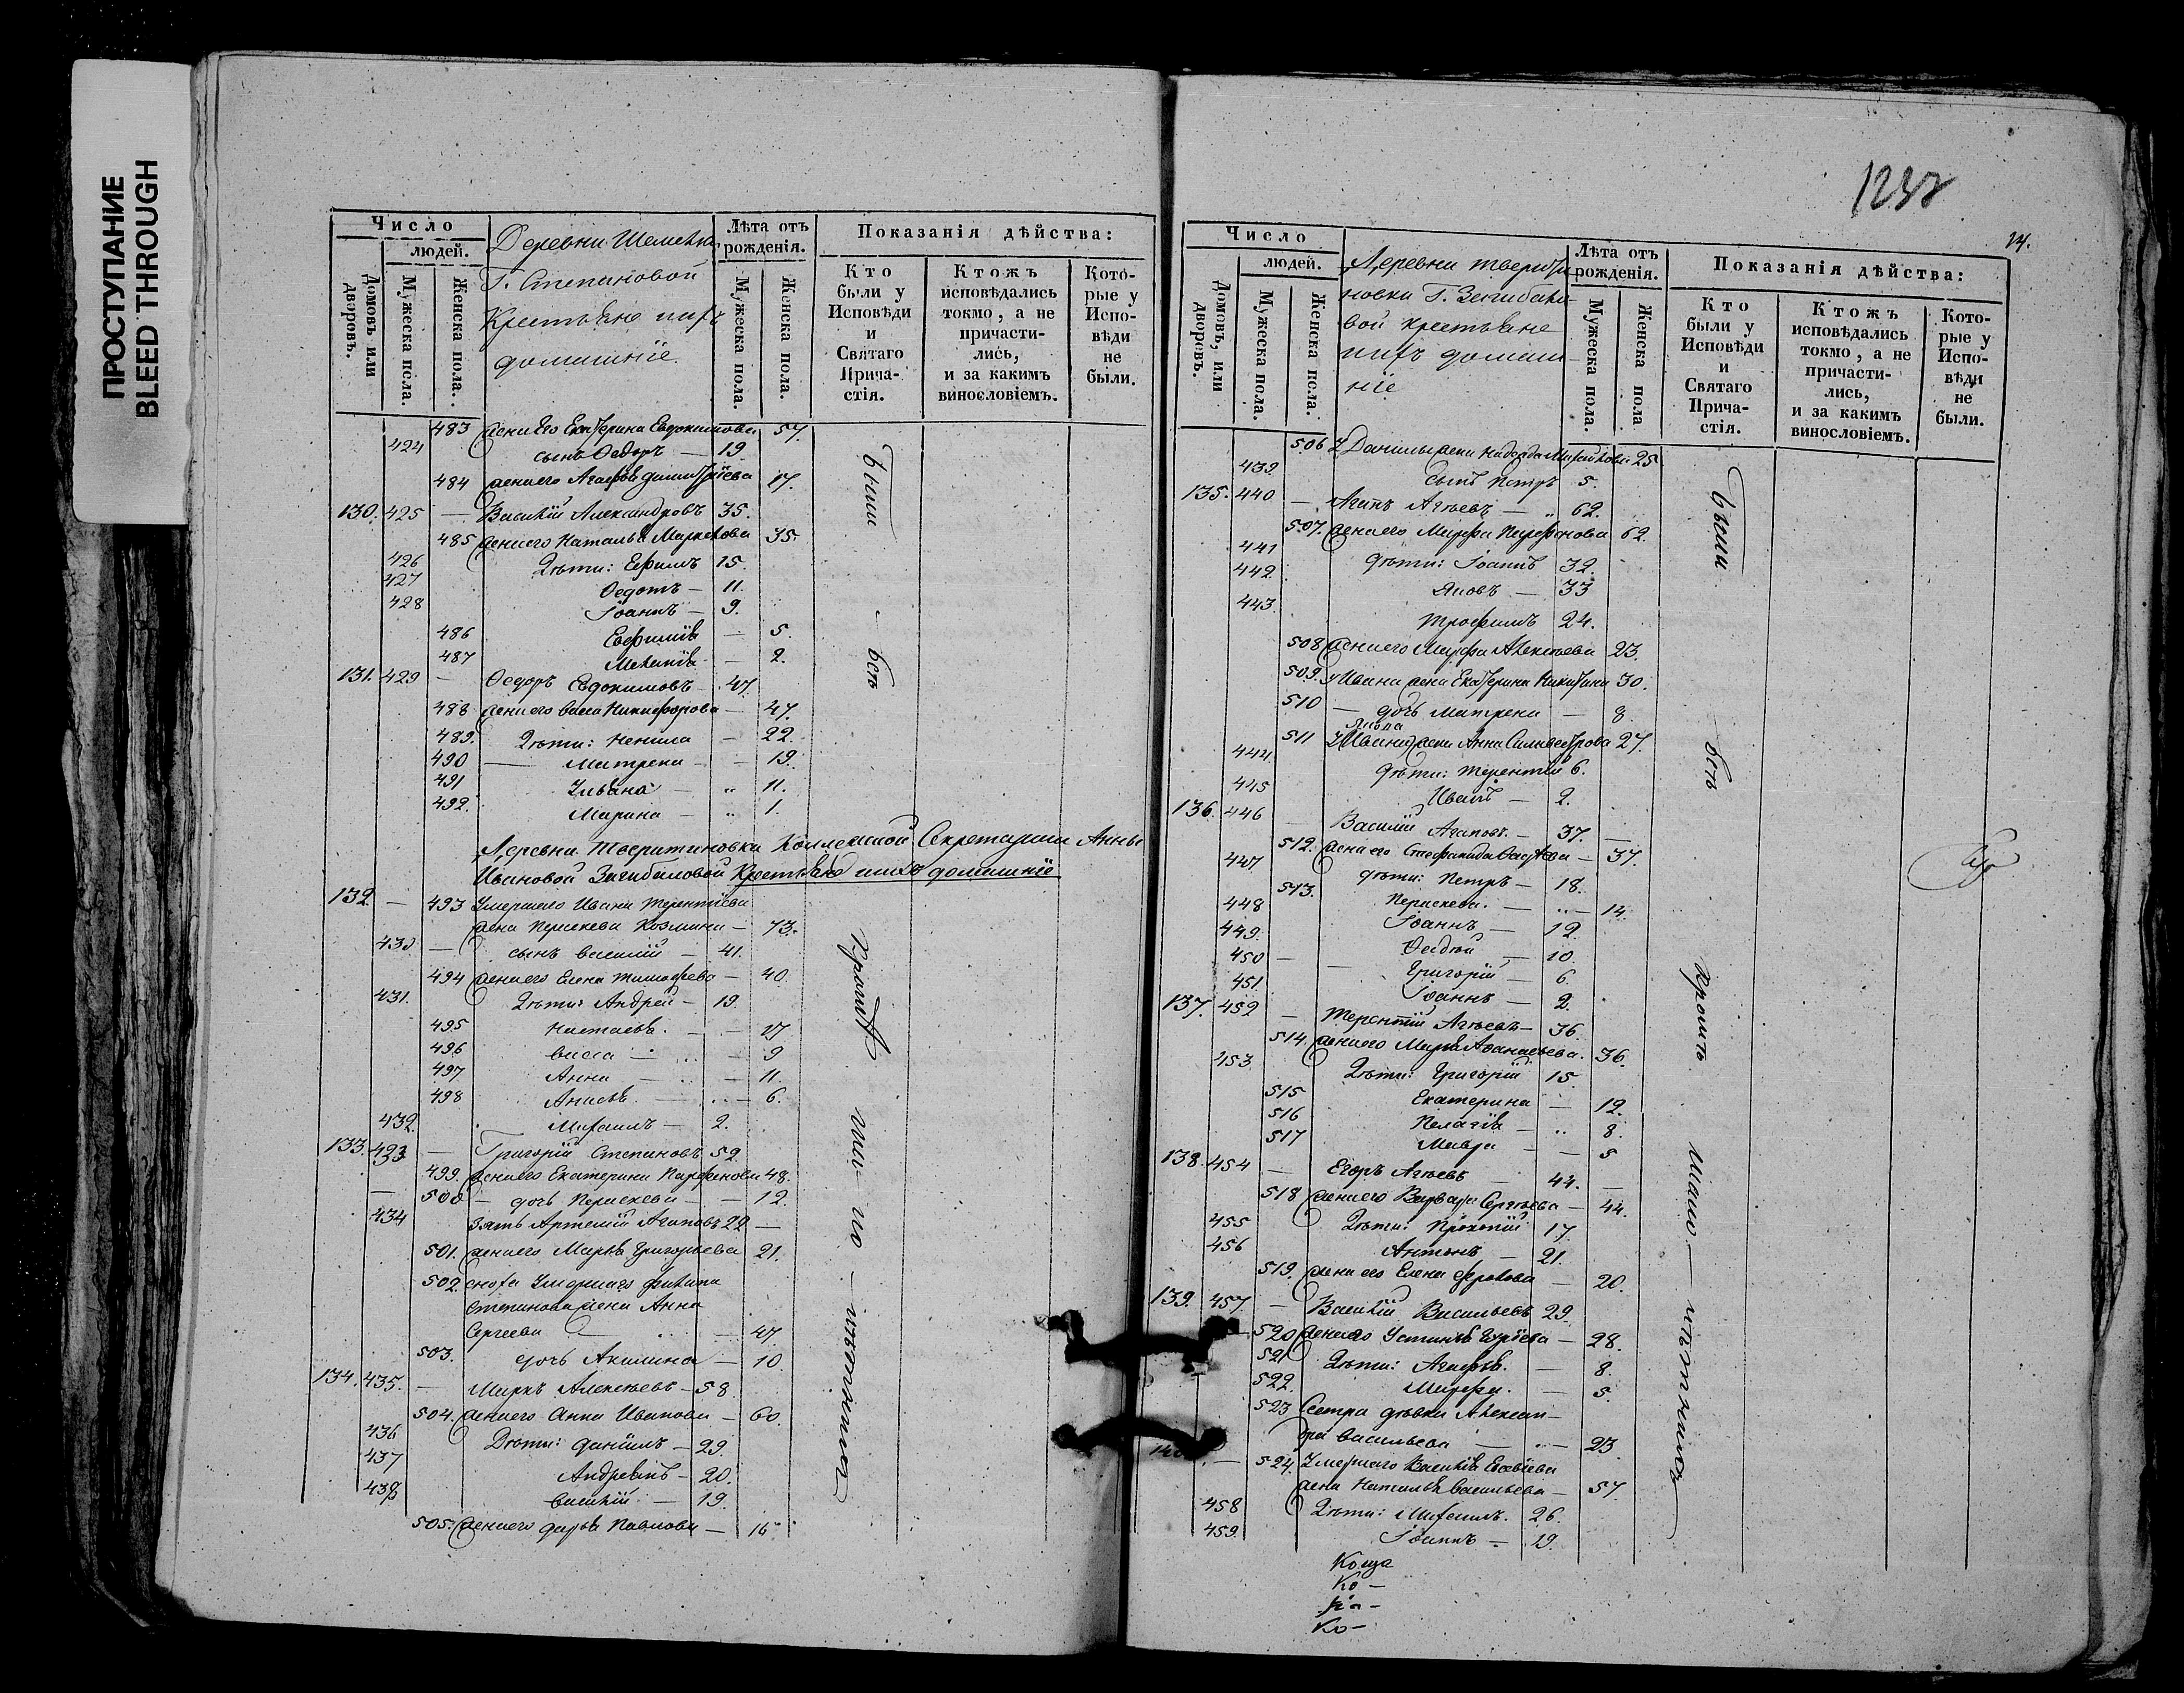 ПРОСТУПАНИЕ
BLEED THROUGH
Число
людей.
Домовъ или дворовъ.
Мужеска пола.
Женска пола.
Деревни
Г. Степановой
Крестьяне ихъ
домашніе.
Лѣта отъ рожденія.
Мужеска пола.
Женска пола.
Показанія дѣйства:
Кто были у Исповѣди и Святаго Прича-стія.
Ктожъ исповѣдались токмо, а не причасти-лись, и за какимъ винословіемъ.
Кото-рые у Испо-вѣди не были.
483 жена его Екатерина Евдокимова 57.
424 сынъ Ѳедоръ — 19
484 жена его Агафья Димитріева 17.
130. 425 — Василій Александровъ 35.
485 жена его Наталья Маркелова 35.
426 Дѣти: Ефимъ 15.
427 Ѳедотъ — 11.
428 Іоаннъ — 9.
486 Евфимія — 5.
487 Меланія — 2.
131. 429 — Ѳедоръ Евдокимовъ 47.
488 жена его Васса Никифорова — 47.
489. Дѣти: Ненила — 22.
490 — Матрена — 19.
491 Ульяна — „ 11.
492. Марина — „ 1.
Деревни Тверитиновки Коллежской Секретарши Анны
Ивановой Загибаловой Крестьяне ихъ домашніе
132. — 493 Умершаго Ивана Терентіева
жена Параскева Козмина — 73.
430 — сынъ Василій — 41.
494 жена его Елена Тимофеева — 40.
431. Дѣти: Андрей — 19.
495 Настасья. — — 17
496 Васса — — 9
497 Анна — — 11.
498 Анисья. — — 6.
432. Михаилъ — 2.
133. 433 — Григорій Степановъ 52.
499. жена его Екатерина Парфенова 48.
— 500 — дочь Параскева — — 12.
434 зять Артемій Агаповъ 22 —
501. жена его Марья Григорьева 21.
502. сноха Умершаго Филипа
Степанова жена Анна
Сергеева — — 47.
503. дочь Акилина — 10
134. 435. — Маркъ Алексѣевъ — 58.
504. жена его Анна Иванова — 60.
436 Дѣти: Даніилъ — 29.
437 Андреянъ — 20.
438 Василій — 19.
505. жена его Дарья Павлова — 16
были
всѣ
Кромѣ
1238
14.
Число
людей.
Домовъ, или дворовъ.
Мужеска пола.
Женска пола.
Деревни Тверити-
новки Г. Загибало-
вой крестьяне
ихъ домаш-
ніе
Лѣта отъ рожденія.
Мужеска пола.
Женска пола
Показанія дѣйства:
Кто были у Исповѣди и Святаго Прича-стія.
Ктожъ исповѣдались токмо, а не причасти-лись, и за какимъ винословіемъ.
Кото-рые у Испо-вѣди не были.
506 У Данилы жена Надежда Михайлова 25
439. сынъ Петръ 5.
135. 440 — Агапъ Агѣевъ — „ 62.
507. жена его Марфа Парфенова 62.
441 дѣти: Іоаннъ 32.
442. Яковъ. — 33
443. Трофимъ 24.
508 жена его Марфа Алексѣева 23.
509. У Ивана жена Екатерина Никитина 30.
510 — дочь Матрена — 8.
511 У Якова жена Анна Силивестрова 27.
444. дѣти: Терентій 6.
445 Иванъ — 2.
136. 446 — Василій Агаповъ. — 37. —
512. жена его Стефанида — 37.
447 дѣти: Петръ — 18.
513. Параскева. — „ — 14.
448 Іоаннъ — 12.
449. — 10.
450 — Григорій — 6.
451. Іоаннъ — 2.
137. 452 — Терентій Агѣевъ — 36.
514. жена его Марья Аѳанасьева. 36.
453 Дѣти: Григорій 15.
515 Екатерина — 12.
516 Пелагія — „ 8.
517 Мавра — — 5
138. 454 — Егоръ Агѣевъ 44. —
518 жена его Варвара Сергѣева — 44.
455 Дѣти: Прокопій 17.
456 Антонъ — 21.
519. жена его Елена Фролова — 20.
139. 457. — Василій Васильевъ 29.
520 жена его Устинья — 28.
521 Дѣти: Агафья. — 8.
522. Марфа. — 5.
523 Сестра дѣвка Алексан-
дра Васильева — — 23
140. — 524. Умершаго Василія Евсѣева
жена Наталья Васильева — 57.
458 Дѣти: Михаилъ. 26.
459. Іоаннъ — 19.
были
всѣ
Кромѣ